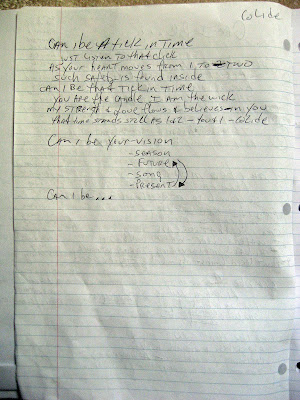 Colide
Can I be A tick in Time
just listen to that click
As your heart moves from 1 to two
such safety is found inside
Can I Be that Tick in Time
You are the candle I am the wick
my strength & love flows & believes in you
that time stands still as 1&2 - You & I - Colide
Can I be your vision
- season
- Future
- song
- Present
Can I be...